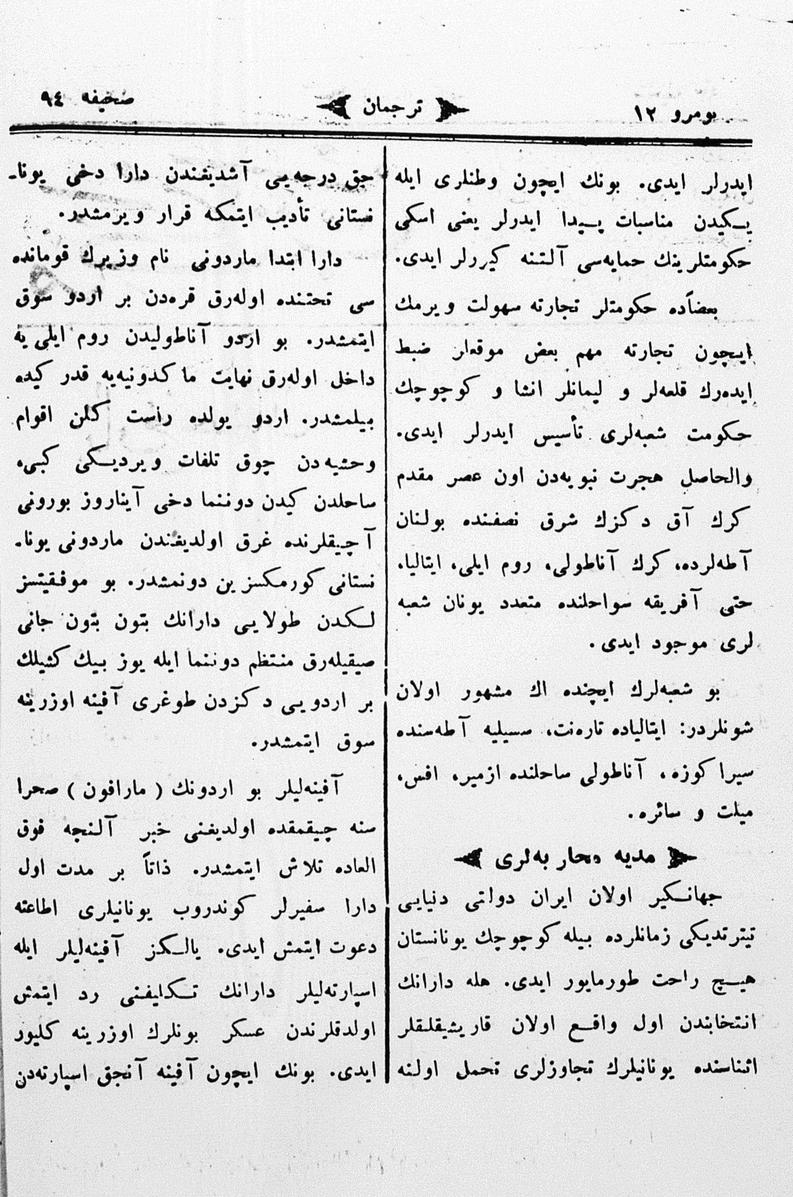 نومرو ١٢
ترجمان
صحیفه ٩٤
ایدرلر ایدی. بونك ایچون وطنلری ایله
یـكیدن مناسبات پـیدا ایدرلر یعنی اسكی
حكومتلرینك حمایه‌سی آلتنه كیررلر ایدی.
بعضاًده حكومتلر تجارته سهولت ویرمك
ایچون تجارته مهم بعض موقعلر ضبط
ایده‌رك قلعه‌لر و لیمانلر انشا و كوچوچك
حكومت شعبه‌لری تأسیس ایدرلر ایدی.
والحاصل هجرت نبویه‌دن اون عصر مقدم
كرك آق دكزك شرق نصفنده بولنان
آطه‌لرده، كرك آناطولی، روم ایلی، ایتالیا،
حتی آفریقه سواحلنده متعدد یونان شعبه
لری موجود ایدی.
بو شعبه‌لرك ایچنده اك مشهور اولان
شونلردر: ایتالیاده تاره‌نت، سسیلیه آطه‌سنده
سیراكوزه، آناطولی ساحلنده ازمیر، افس،
میلت و سائره.
مدیه محاربه‌لری
جهانـكیر اولان ایران دولتی دنیایی
تیترتدیكی زمانلرده بیله كوچوچك یونانستان
هیـچ راحت طورمایور ایدی. هله دارانك
انتخابندن اول واقـع اولان قاریشیقلـقلر
اثناسنده یونانیلرك تجاوزلری تحمل اولنه
جق درجه‌یی آشدیغندن دارا دخی یونا-
نستانی تأدیب ایتمكه قرار ویرمشدر.
دارا ابتدا ماردونی نام وزیرك قومانده
سی تحتنده اوله‌رق قره‌دن بر اردو سوق
ایتمشدر. بو اردو آناطولیدن روم ایلی یه
داخل اوله‌رق نهایت ماكدونیه‌یه قدر كیده
بیلمشدر. اردو یولده راست كلن اقوام
وحشیه‌دن چوق تلفات ویردیـكی كبی،
ساحلدن كیدن دوننما دخی آیناروز بورونی
آچیقلرنده غرق اولدیغندن ماردونی یونا-
نستانی كورمكسزین دونمشدر. بو موفـقیتسز
لـكدن طولایی دارانك بتون بتون جانی
صیقیله‌رق منتظم دوننما ایله یوز بیك كشیلك
بر اردویی دكزدن طوغری آفینه اوزرینه
سوق ایتمشدر.
آفینه‌لیلر بو اردونك ( مارافون ) صحرا
سنه چیقمقده اولدیغنی خبر آلنجه فوق
العاده تلاش ایتمشدر. ذاتاً بر مدت اول
دارا سفیرلر كوندروب یونانیلری اطاعته
دعوت ایتمش ایدی. یالـكز آفینه‌لیلر ایله
اسپارته‌لیلر دارانك تـكلیفنی رد ایتمش
اولدقلرندن عسكر بونلرك اوزرینه كلیور
ایدی. بونك ایچون آفینه آنجق اسپارته‌دن